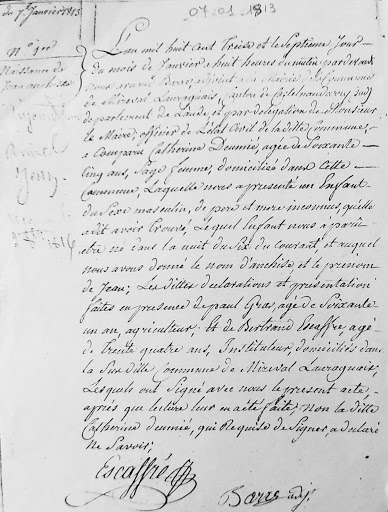 du 7. Janvier 1813
07-01-1813
N.o 1er
Naissance de
Jean anchise
L'an mil huit cent Treize et le Septième Jour
du mois de Janvier à huit heures du matin pardevant
nous
adjoint au Maire de la Commune
de Mireval Lauragais, Canton de Castelnaudary Sud
departement de Laude, et par delegation de Monsieur
le Maire, officier de l'etat Civil de la ditte Commune,
a Comparu Catherine Deumié, agée de Soixante
Cinq ans, Sage femme, domiciliée dans Cette
Commune, Laquelle nous a presenté un Enfant
du Sexe masculin, de pere et mere inconnus, qu'elle
a dit avoir trouvé, Lequel Enfant nous a paru
etre né dans la nuit du Six du Courant, et auquel
nous avons donné le nom d'anchise, et le prenom
de Jean; Les dittes declarations et présentation
faites en presence de paul Gras, age de Soixante
un an, agriculteur; Et de Bertrand Escaffre, age
de Trente quatre ans, Instituteur, domiciliés dans
la Sus ditte Commune de Mireval Lauragais,
Lesquels ont Signé avec nous le present acte,
après que lecture leur en a été faite, non la ditte
Catherine deumié, qui Requise de Signer, a declaré
ne Savoir;
Escaffré
Barre adj.